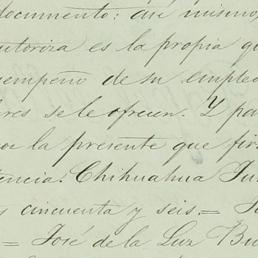 documento: que mismo,
autoriza es la propia qu
sempeño de su empleo
res se le ofrecen. Y pa
or la presente que fir
tencia. Chihuahua Ju
s cincuenta y seis.= Jo
= José de la Luz Bu